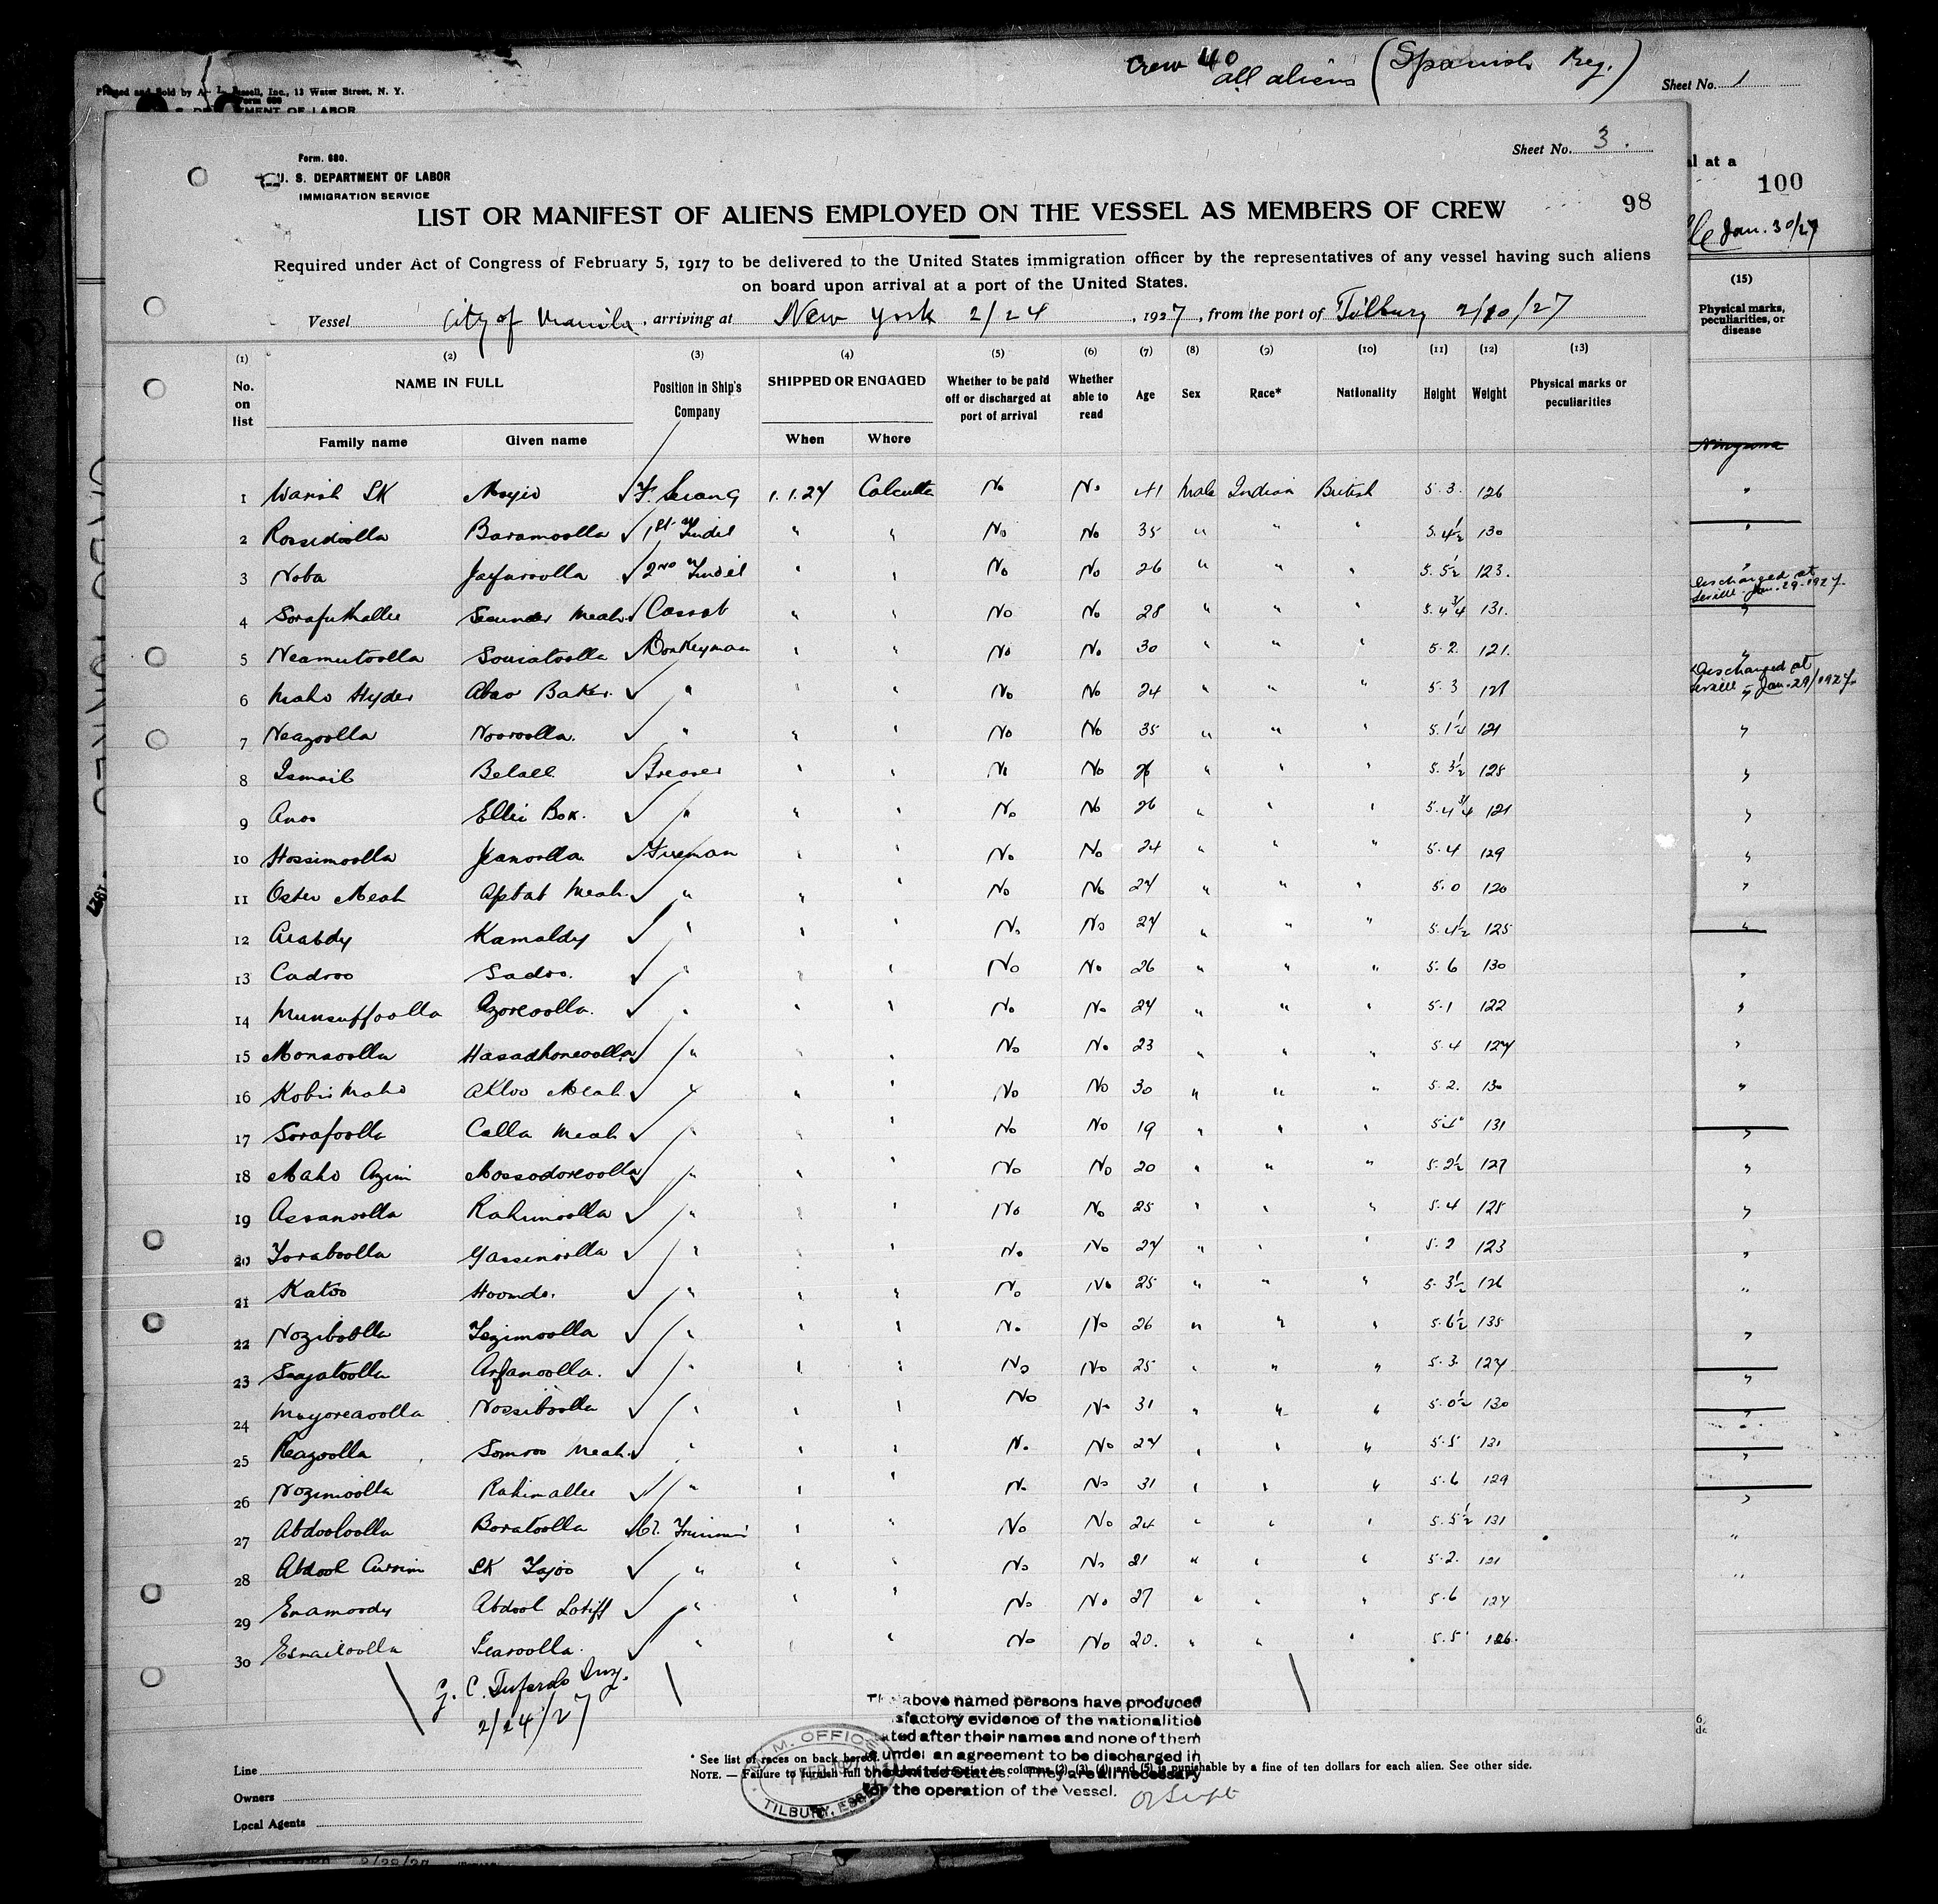 Crew 40
all aliens (Spanish Reg.)
Printed and Sold by A. L. Russell, Inc., 13 Water Street, N. Y.
Form 680
Sheet No. 1
Sheet No. 3.
Form. 680.
U. S. DEPARTMENT OF LABOR
IMMIGRATION SERVICE
al at a
100
LIST OR MANIFEST OF ALIENS EMPLOYED ON THE VESSEL AS MEMBERS OF CREW
98
Jan. 30/27
Required under Act of Congress of February 5, 1917 to be delivered to the United States immigration officer by the representatives of any vessel having such aliens
on board upon arrival at a port of the United States.
Vessel City of Manila, arriving at New York 2/24, 1927, from the port of Tilbury 2/10/27
(15)
Physical marks, peculiarities, or disease
(1) (2) (3) (4) (5) (6) (7) (8) (9) (10) (11) (12) (13)
No. on list NAME IN FULL Position in Ship's Company SHIPPED OR ENGAGED Whether to be paid off or discharged at port of arrival Whether able to read Age Sex Race* Nationality Height Weight Physical marks or peculiarities
Family name Given name When Where
1 Warish SK Mojid F. Serang 1.1.27 Calcutta No No 41 Male Indian British 5.3. 126
2 Rossidoolla Baramoolla 1st " Tindel " " No No 35 " " " 5.4½ 130
3 Noba Jafuroolla 2nd " Tindel " " No No 26 " " " 5.5½ 123.
Discharged at Seville Jan. 29. 1927.
4 Sorafuthallee Secunder Meah Cassab " " No No 28 " " " 5.4¾ 131.
5 Neamutoolla Souiatoolla Donkeyman " " No No 30 " " " 5.2. 121.
Discharged at Seville Jan. 29/1927.
6 Maho Hyder Abao Baker. " " " No No 24 " " " 5.3
7 Neazoolla Nooroolla. " " " No No 35 " " " 5.1½ 121
8 Ismail Belall Greaser " " No No 26 " " " 5.3½ 128
9 Anoo Ellie Box. " " " No No 26 " " " 5.4¾ 121
10 Hossimoolla Jeanoolla. Fireman " " No No 24 " " " 5.4 129
11 Oster Meah Aftab Meah. " " " No No 24 " " " 5.0 120
12 Arabdy Kamaldy " " " No No 24 " " " 5.4½ 125
13 Cadroo Sadoo. " " " No No 26 " " " 5.6 130
14 Munsuffoolla Azoreoolla. " " " No No 24 " " " 5.1 122
15 Monsoolla Hasadhoneoolla " " " No No 23 " " " 5.4 124
16 Kobir Maho Akloo Meah " " " No No 30 " " " 5.2. 130
17 Sorafoolla Calla Meah " " " No No 19 " " " 131
18 Maho Azim Mossodoreoolla " " " No No 20 " " " 5.2½ 127
19 Assanoolla Rahimoolla " " " No No 25 " " " 5.4 128
20 Toraboolla Yassinoolla " " " No No 24 " " " 5.2 123
21 Katoo Hoondo. " " " No No 25 " " " 5.3½ 126
22 Noziboolla Tezimoolla " " " No No 26 " " " 5.6½ 135
23 Saajatoolla Arfanoolla. " " " No No 25 " " " 5.3. 124
24 Moyoreaoolla Nossiboolla " " " No No 31 " " " 5.0½ 130
25 Reazoolla Somroo Meah. " " " No No 24 " " " 5.5 131
26 Nozimoolla Rahimallee " " " No No 31 " " " 5.6 129
27 Abdooloolla Boratoolla Trimmer " " No No 24 " " " 5.5½ 131
28 Abdool Currim SK Tajoo " " " No No 21 " " " 5.2. 121
29 Enamoody Abdool Lotiff " " " No No 27 " " " 5.6 124
30 Esrailoolla Searoolla. " " " No No 20. " " " 5.5 126.
2/24/27
The above named persons have produced
satisfactory evidence of the nationalities
stated after their names and none of them
are under an agreement to be discharged in
the United States. They are all necessary
for the operation of the vessel.
M. M. OFFICE
TILBURY, ESSEX
* See list of races on back hereof.
NOTE. — Failure to furnish full information in columns (2), (3), (4) and (5) is punishable by a fine of ten dollars for each alien. See other side.
Line
Owners
Local Agents